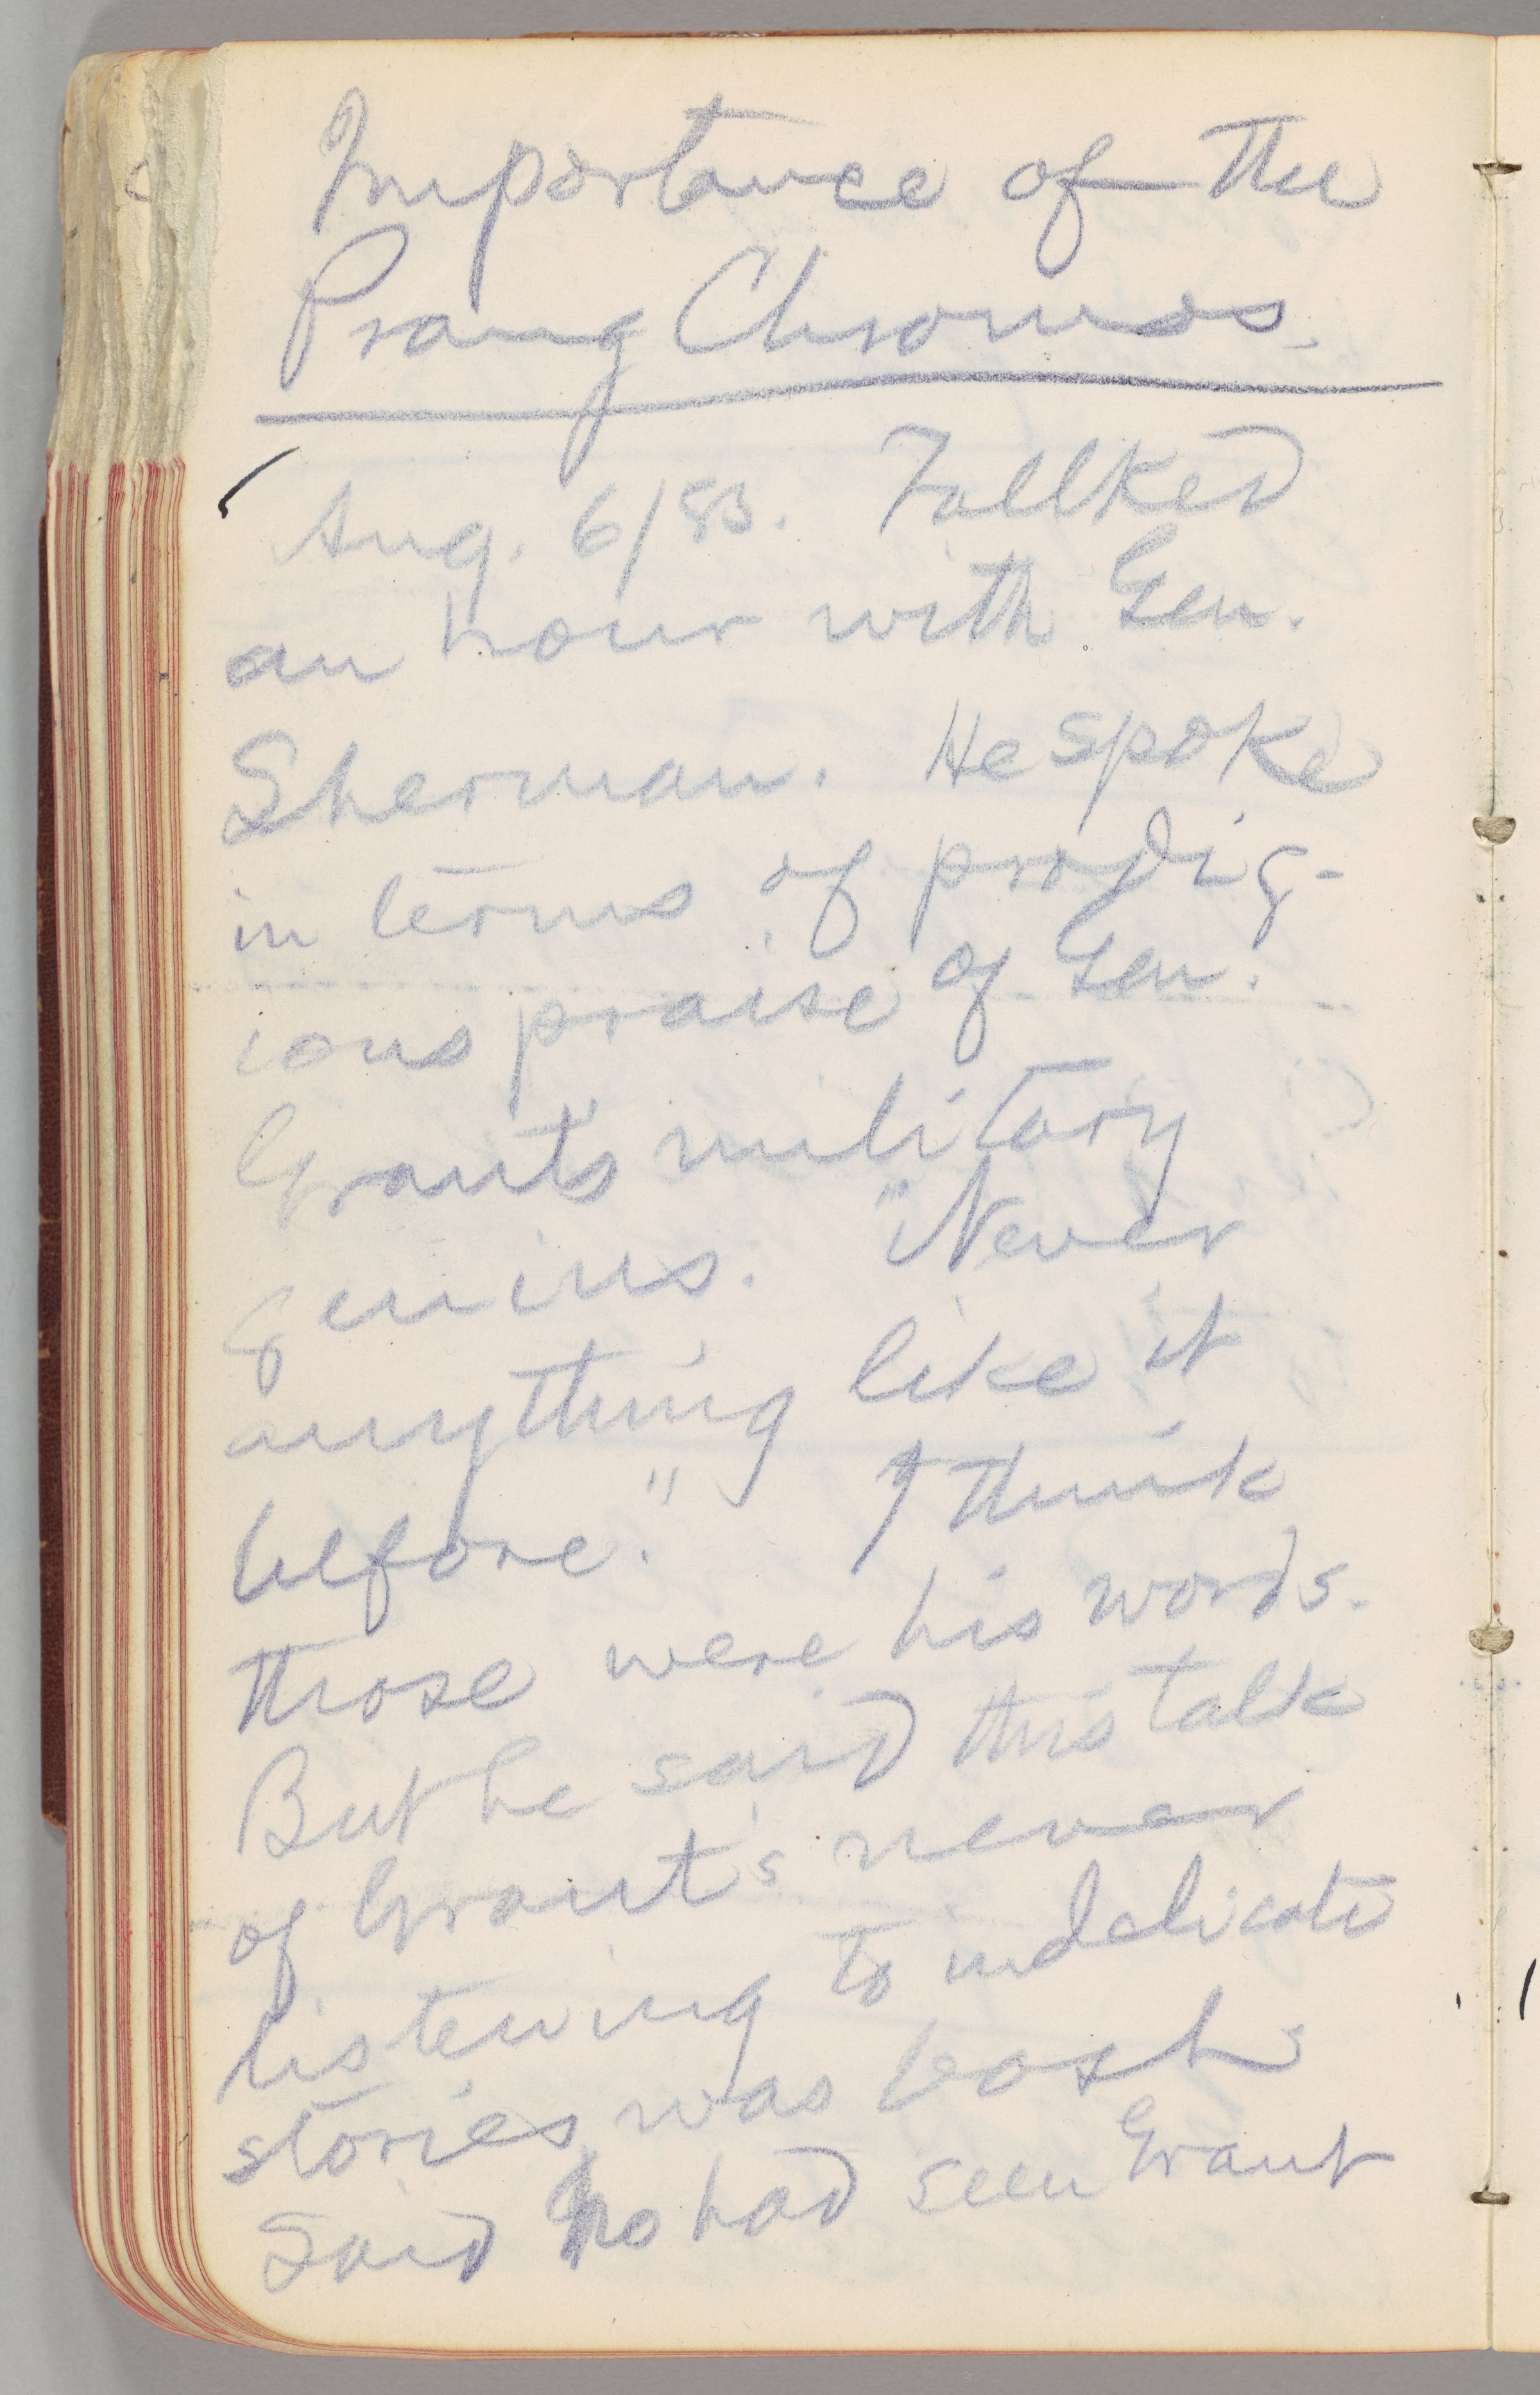 Importance of the
Prang Chromos.
Aug. 6/85. Tallked
an hour with Gen.
Sherman. He spoke
in terms of prodig-
ious praise of Gen.
Grant's military
genius. "Never
anything like it
before." I think
those were his words.
But he said this talk
of Grant's never
listening to indelicate
stories was bosh
Said he had seen Grant